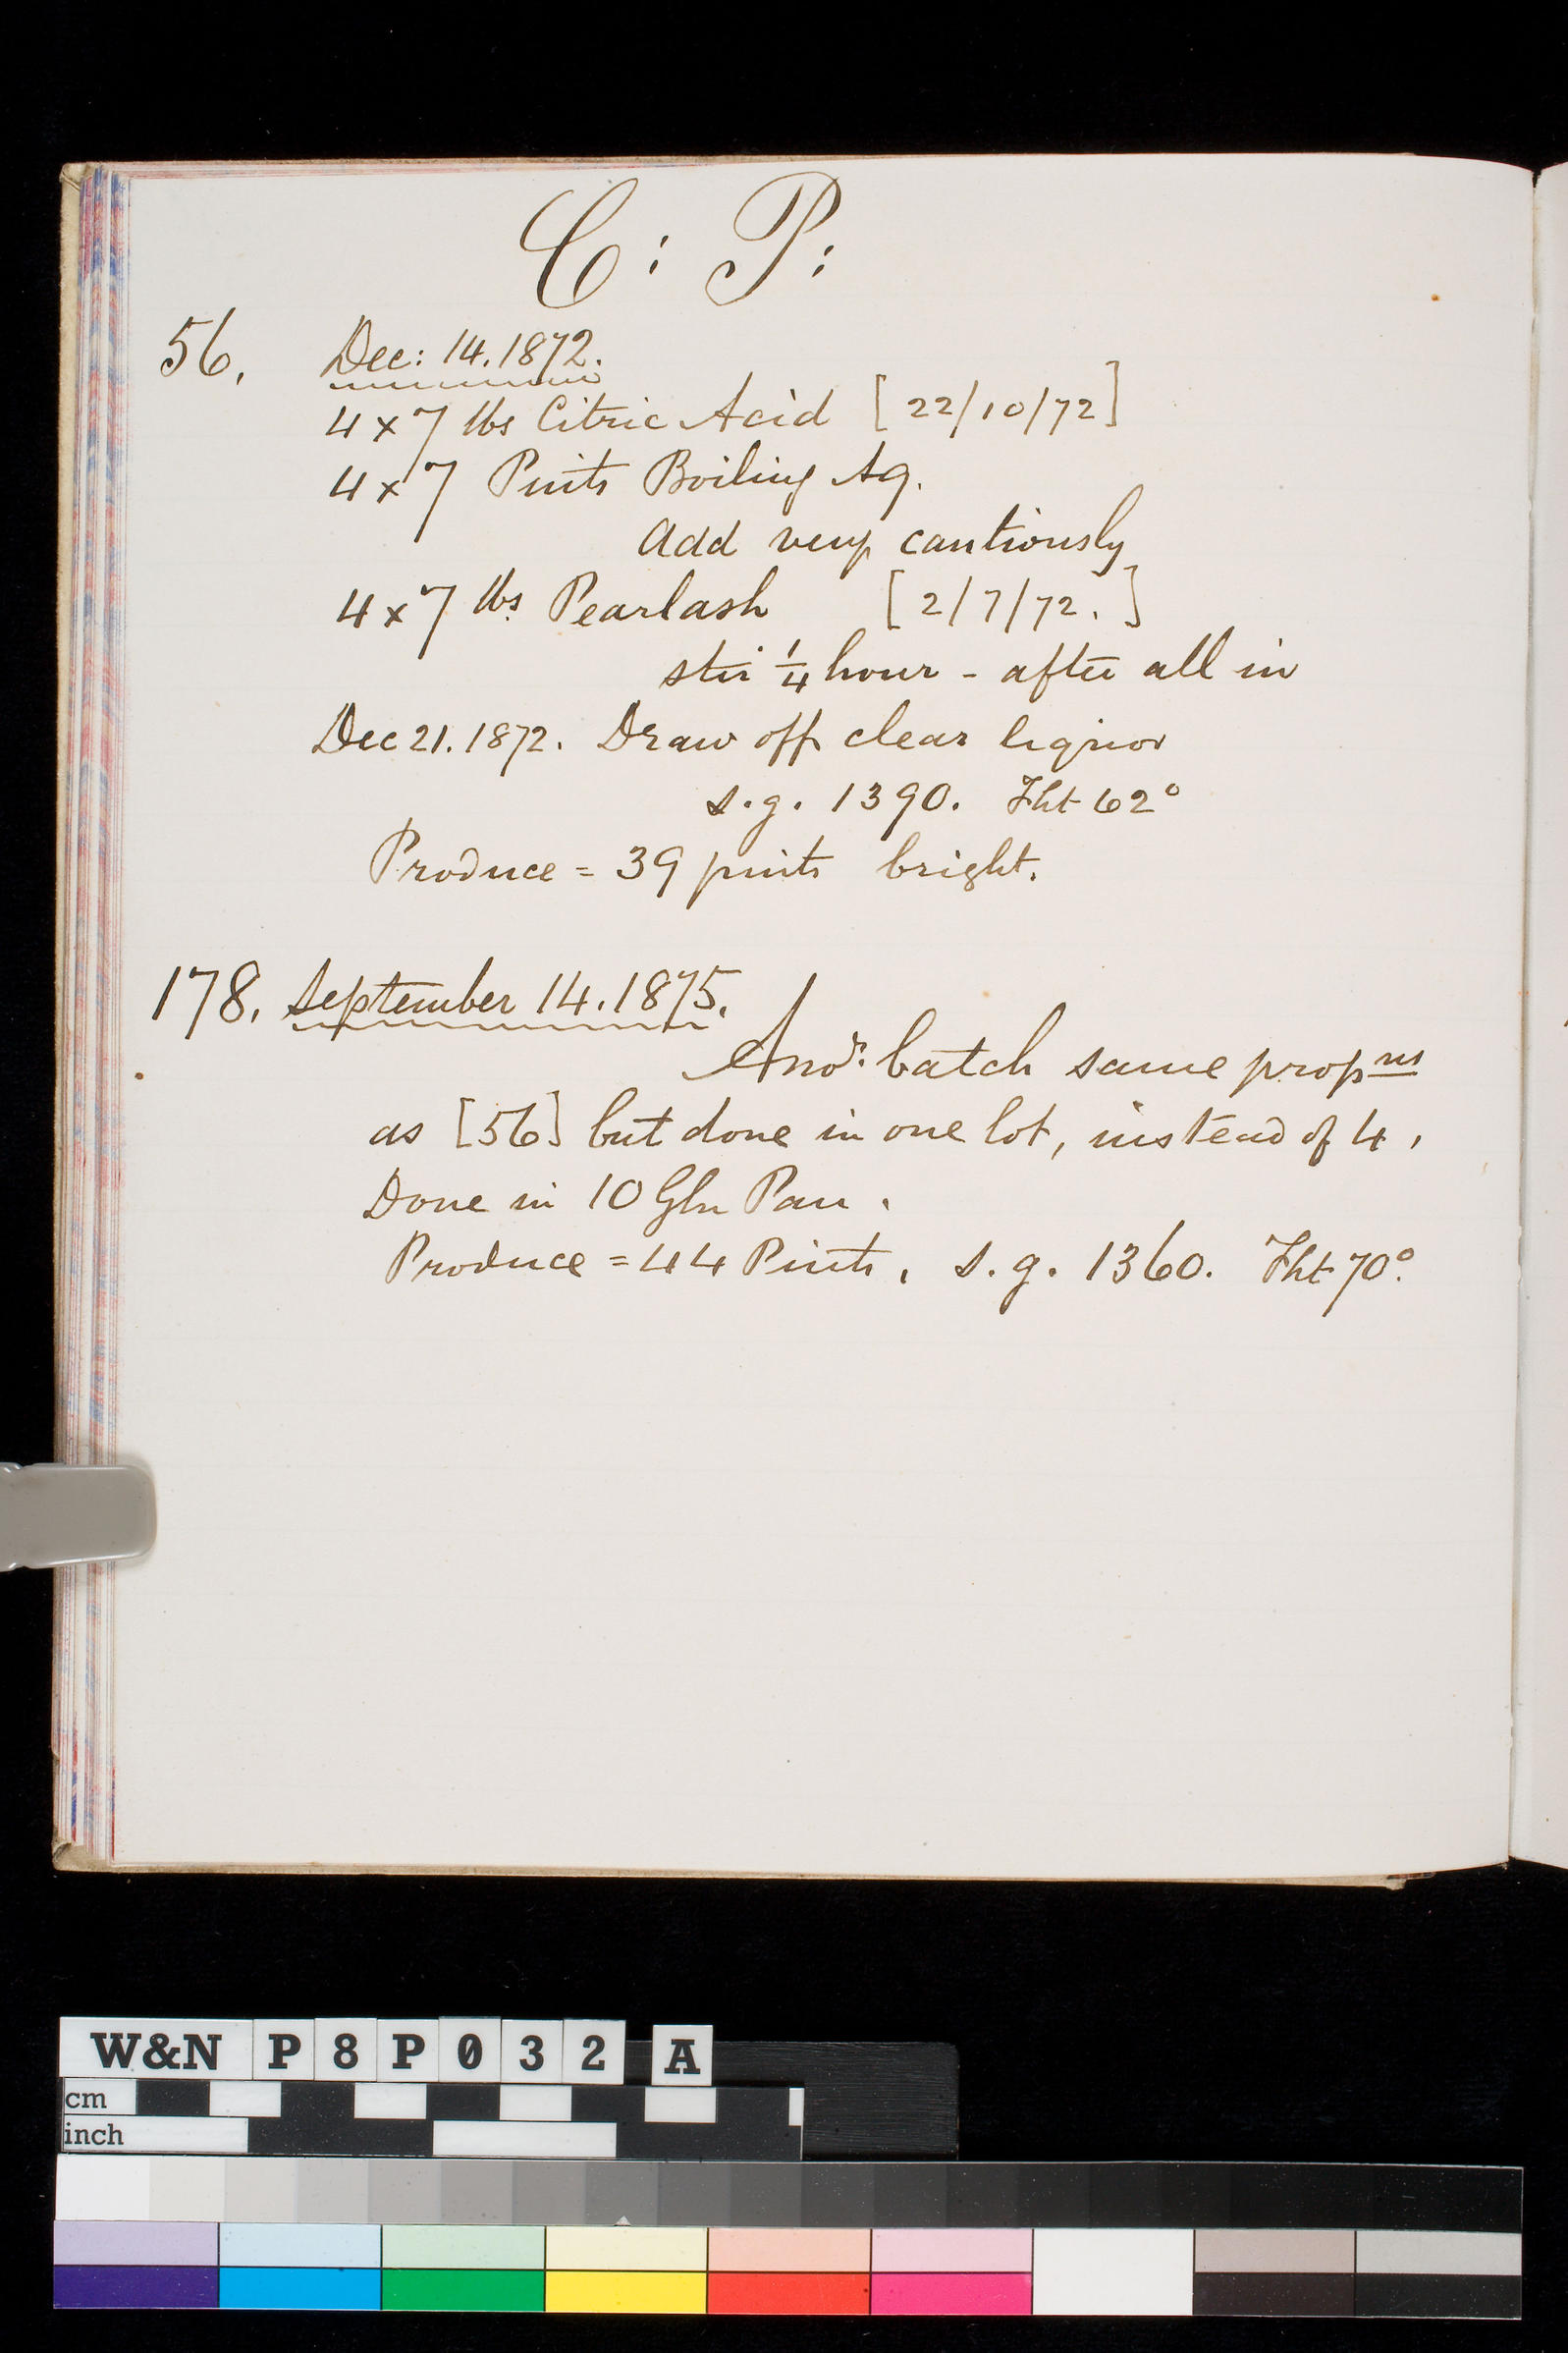 C: P:
56. Dec: 14. 1872.
4 x 7 lbs Citric Acid [22/10/72]
4 x 7 Pints Boiling Aq.
Add very cautiously
4 x 7 lbs Pearlash [2/7/72.]
stir 1/4 hour - after all in
Dec 21. 1872. Draw off clear liquor
s.g. 1390. Fht 62°
Produce = 39 pints bright.
178. September 14. 1875.
Anor. batch same propns
as [56] but done in one lot, instead of 4.
Done in 10 Gln Pan.
Produce = 44 Pints. s.g. 1360. Fht 70°.
W&N P8P032 A
cm
inch